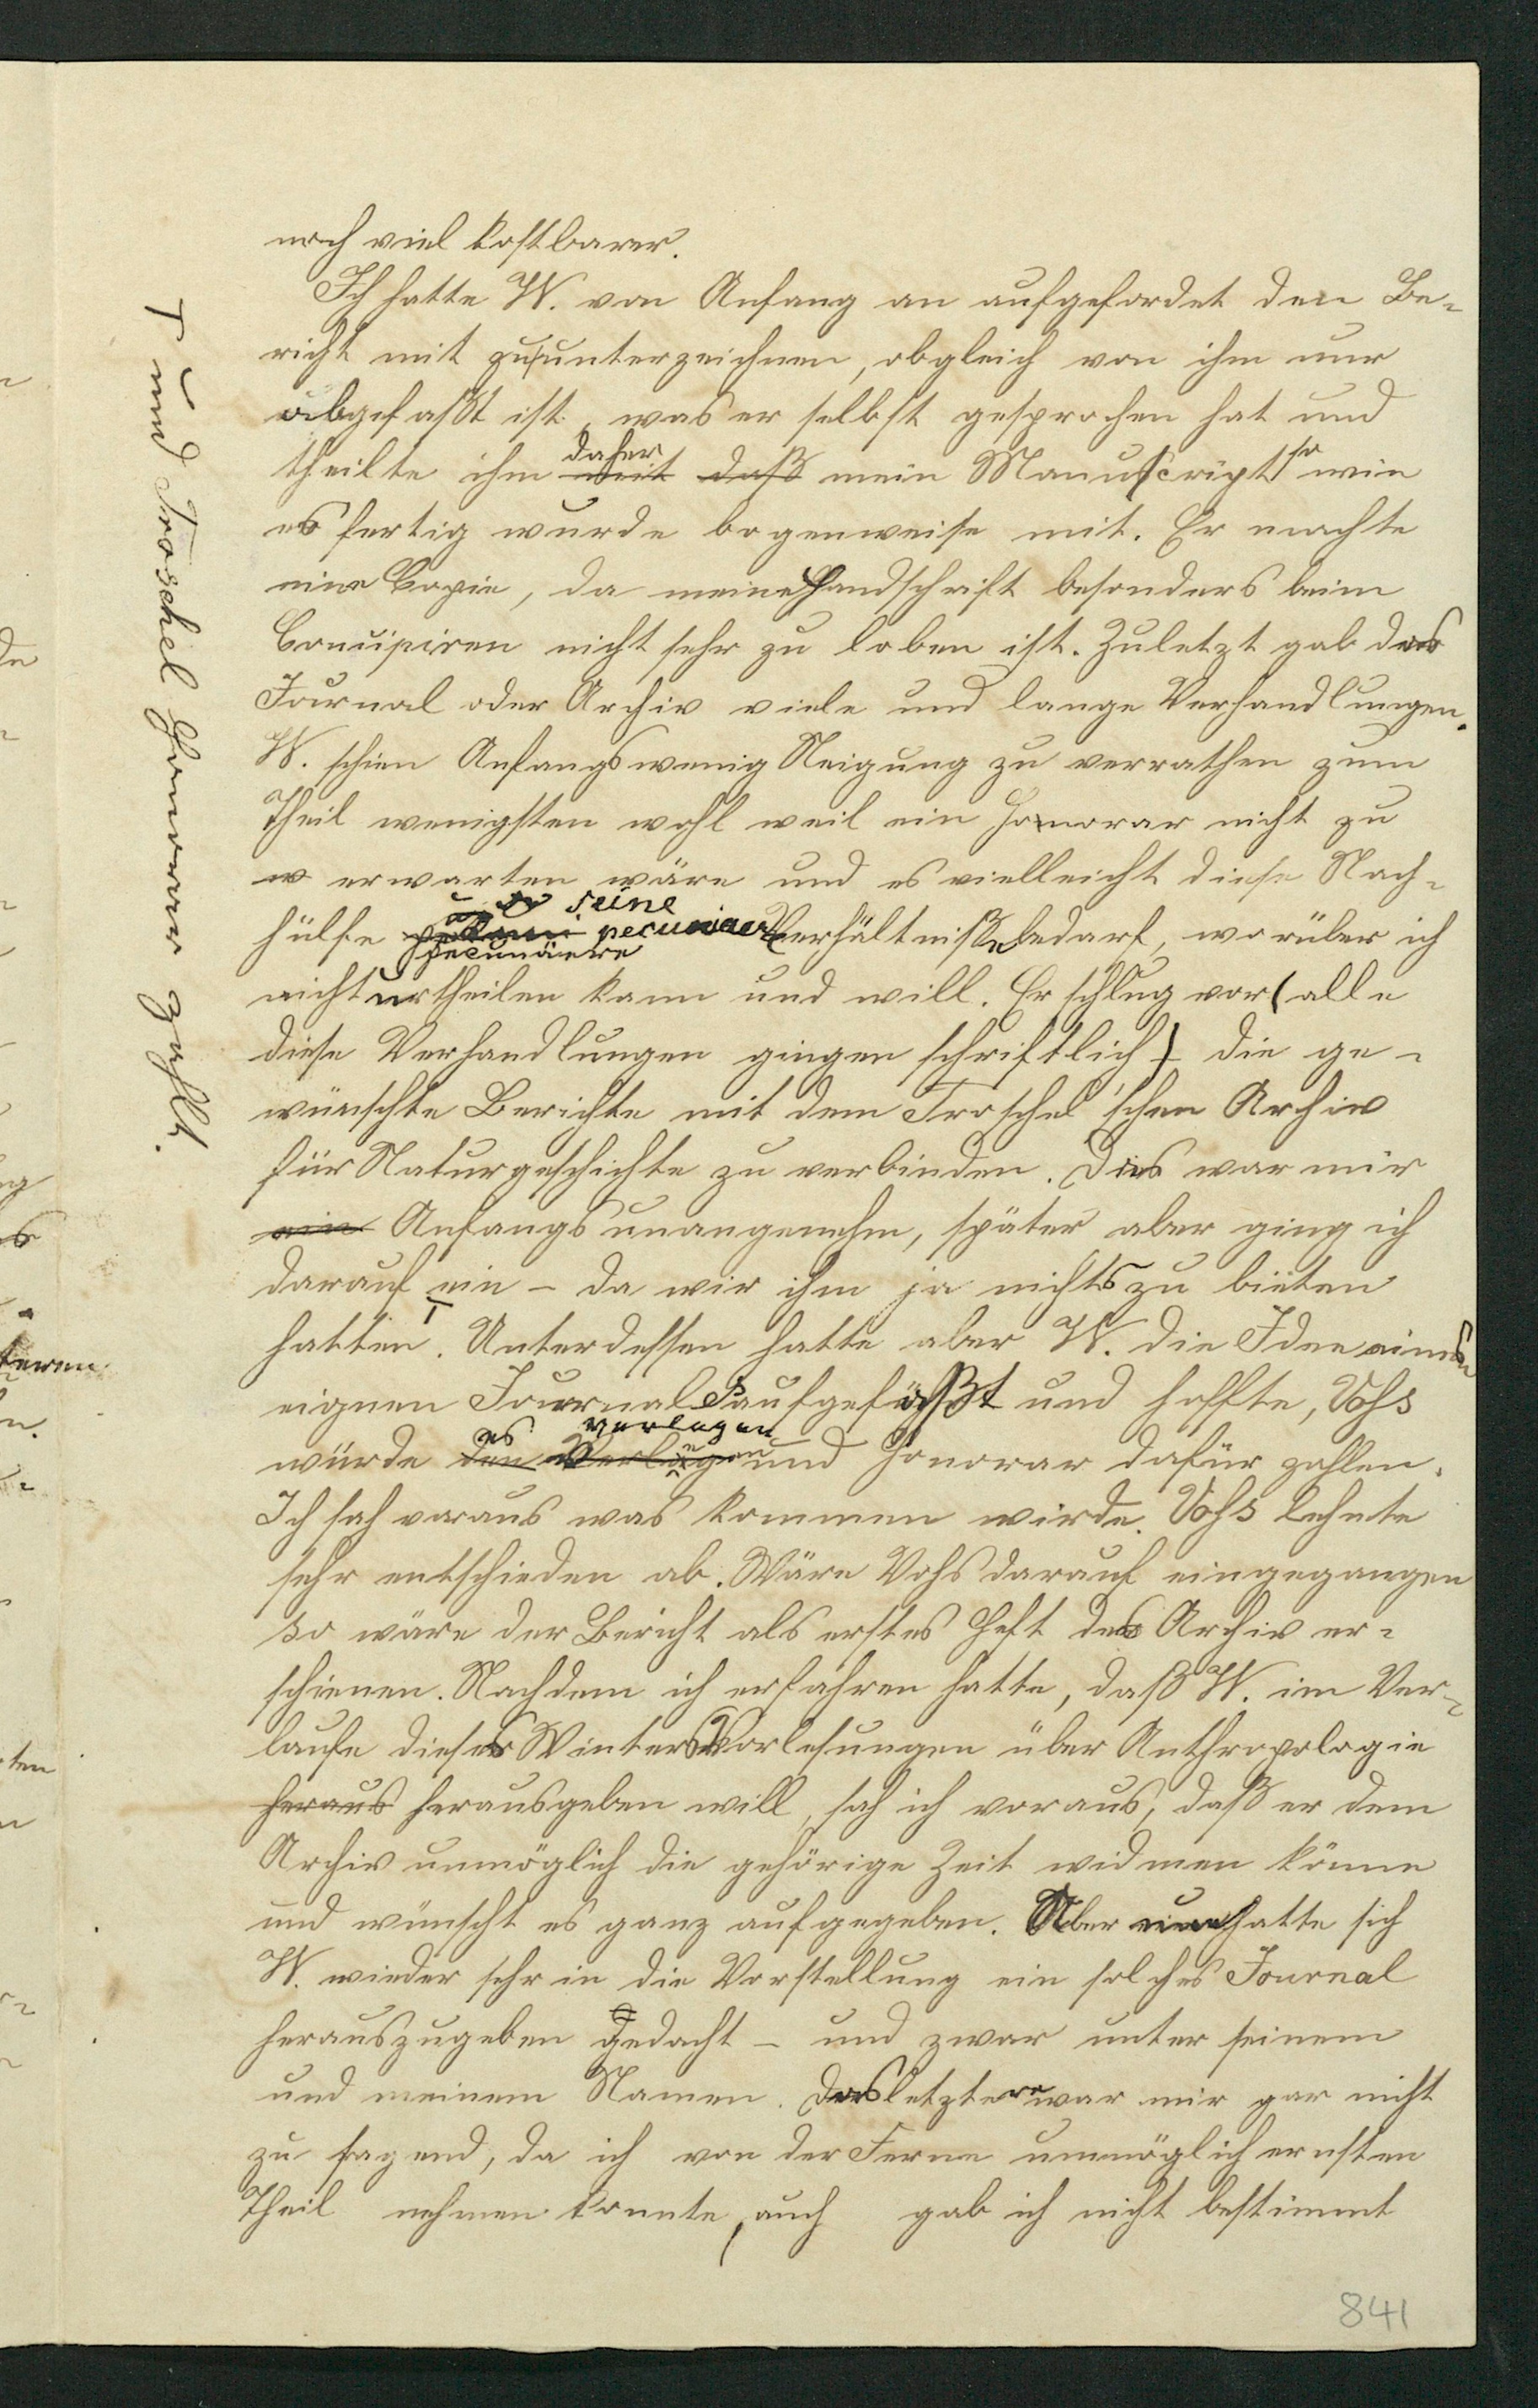 noch viel kostbarer.
Ich hatte W. von Anfang an aufgefordet den Be-
richt mit zu unterzeichnen, obgleich von ihm nur
abgefaßt ist, was er selbst gesprochen hat und
theilte ihm mit daß daher mein Manuscript so wie
es fertig wurde bogenweise mit. Er machte
eine Copie, da meine Handschrift besonders beim
Concipiren nicht sehr zu loben ist. Zuletzt gab das
Journal oder Archiv viele und lange Verhandlungen.
W. schien Anfangs wenig Neigung zu verrathen zum
Theil wenigsten wohl weil ein Honorar nicht zu
w erwarten wäre und es vielleicht diese Nach-
hülfe seine pecuniäre Verhältnisse bedarf, worüber ich
nicht urtheilen kann und will. Er schlug vor (alle
diese Verhandlungen gingen schriftlich) die ge-
wünschte Berichte mit dem Troschel'schen Archiv
für Naturgeschichte zu verbinden. Dies war mir
ein Anfangs unangenehm, später aber ging ich
darauf ein – da wir ihm ja nichts zu bieten
hatten. Unterdessen hatte aber W. die Idee eines
eignen Journals aufgefaßt und hoffte, Voß
würde den Verlag es verlegen und Honorar dafür zahlen.
Ich sah voraus was kommen wirde. Vohs lehnte
sehr entschieden ab. Wäre Vohs darauf eingegangen
so wäre der Bericht als erstes Heft des Archiv er-
schienen. Nachdem ich erfahren hatte, daß W. im Ver-
laufe dieses Winters Vorlesungen über Anthropologie
heraus herausgeben will, sah ich voraus, daß er dem
Archiv unmöglich die gehörige Zeit widmen könne
und wünscht es ganz aufgegeben. Aber nun hatte sich
W. wieder sehr in die Vorstellung ein solches Journal
herauszugeben gedacht – und zwar unter seinem
und meinem Namen. Das letztere war mir gar nicht
zu sagend, da ich von der Ferne unmöglich ernsten
Theil nehmen konnte, auch gab ich nicht bestimmt
T und Troschel Honorar zahlt.
841